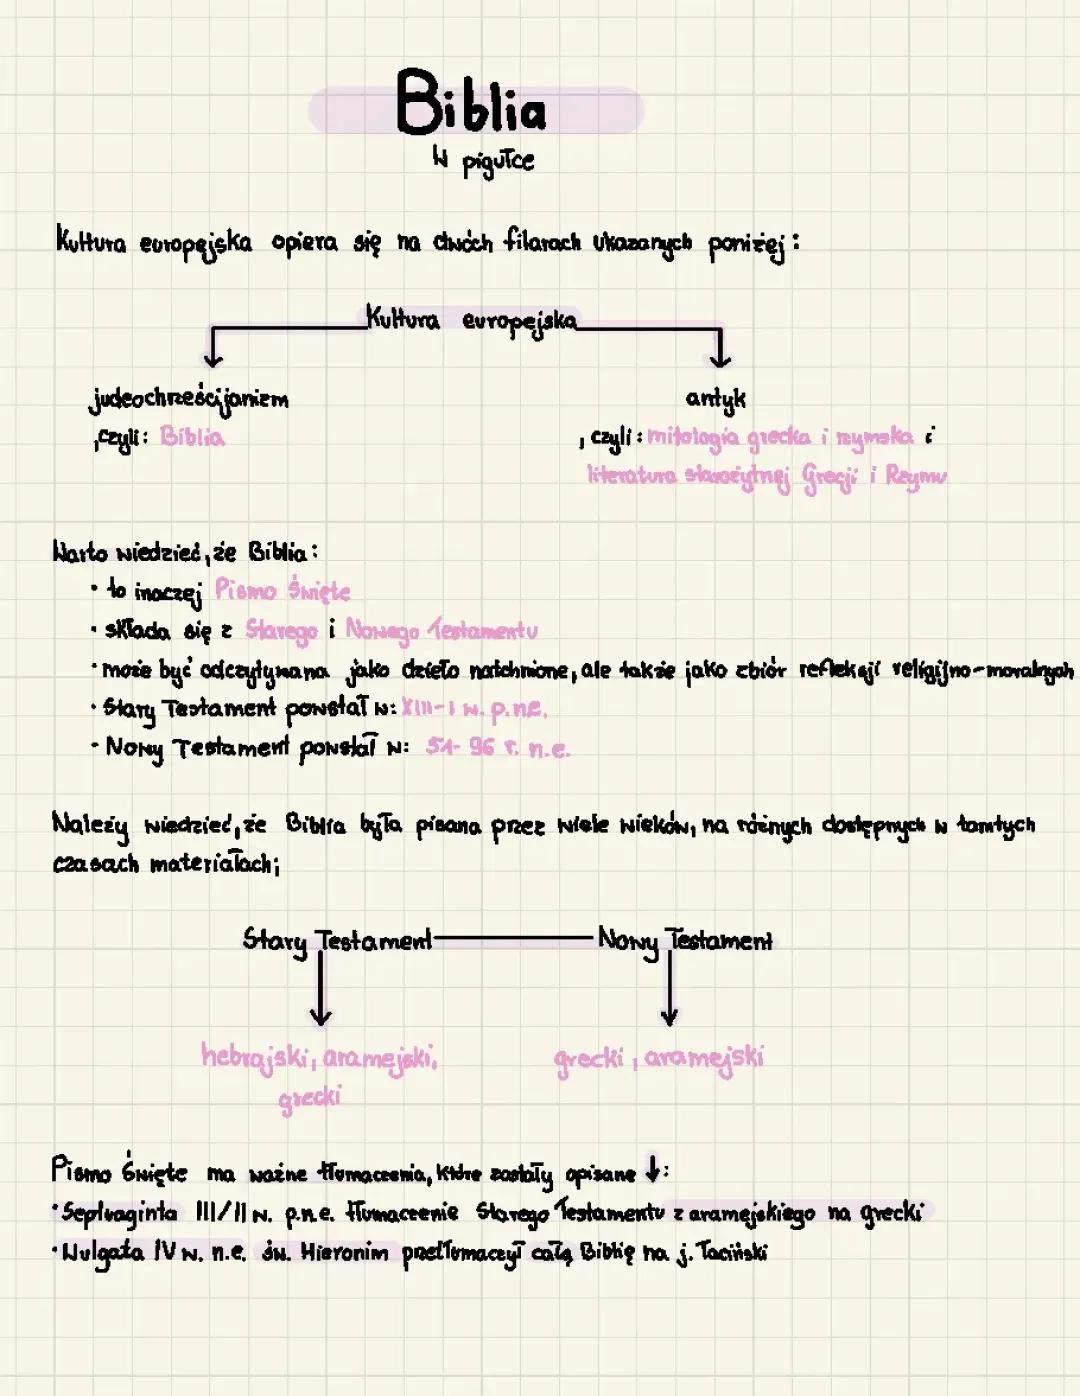 Biblia
w pigułce
Kultura europejska opiera się na dwóch filarach ukazanych poniżej:
Kultura europejska
judeochrześcijanizm
antyk
, czyli: Biblia
, czyli: mitologia grecka i rzymska i
literatura starożytnej Grecji i Rzymu
Warto wiedzieć, że Biblia:
• to inaczej Pismo Święte
• składa się z Starego i Nowego Testamentu
• może być odczytywana jako dzieło natchnione, ale także jako zbiór refleksji religijno-moralnych
• Stary Testament powstał w: XIII-I w. p.n.e.
• Nowy Testament powstał w: 51-96 r. n.e.
Należy wiedzieć, że Biblia była pisana przez wiele wieków, na różnych dostępnych w tamtych
czasach materiałach;
Stary Testament
Nowy Testament
hebrajski, aramejski,
grecki
grecki, aramejski
Pismo Święte ma ważne tłumaczenia, które zostały opisane ↓:
• Septuaginta III/II w. p.n.e. tłumaczenie Starego Testamentu z aramejskiego na grecki
• Wulgata IV w. n.e. św. Hieronim przetłumaczył całą Biblię na j. łaciński